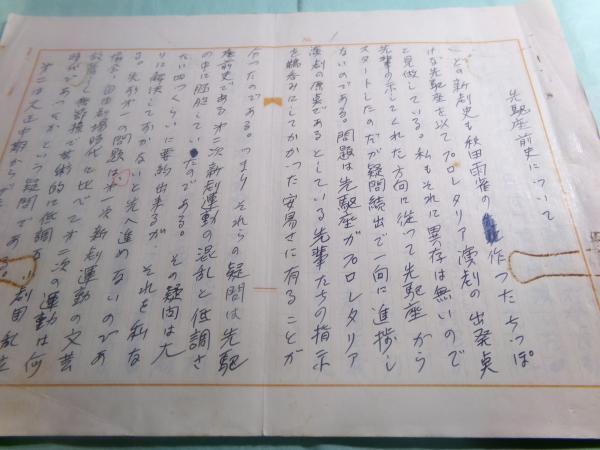 先駆座前史について
どの新劇史も秋田雨雀の作ったちっぽ
けな先駆座を以てプロレタリア演劇の出発点
と見做している。私もそれに異存は無いので
先輩の示してくれた方向に従って先駆座から
スタートしたのだが疑問続出で一向に進捗し
ないのである。問題は先駆座がプロレタリア
演劇の原点であるとしている先輩たちの指示
を鵜呑みにしてかかった安易さに有ることが
分ったのである。つまりそれらの疑問は先駆
座前史である第二次新劇運動の混乱と低調さ
の中に胚胎していたのである。その疑問は大
たい四つくらいに要約出来るが、それを私な
りに解決しておかないと先へ進めないのであ
る。先ず第一の問題は第一次新劇運動の文芸
協会、自由劇場時代に比べて第二次の運動は何
故
無節操で芸術的に低調な
時代であったかという疑問である。
第二は大正中期から